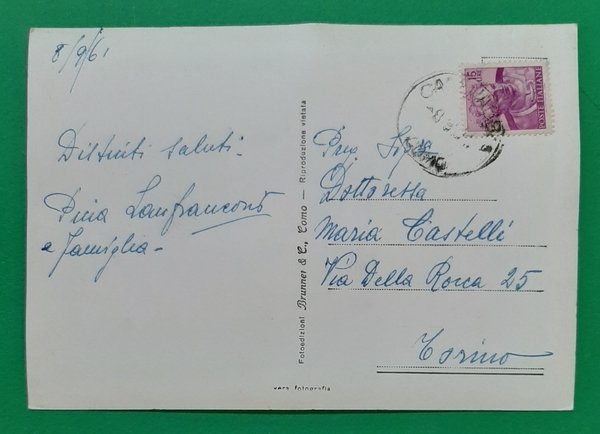 8/9/61
Distinti saluti.
Pina Lanfranconi
e famiglia -
Fotoedizioni Brunner & C., Como — Riproduzione vietata
vera fotografia
15
POSTE ITALIANE
COMO
Dottoressa
Maria Castelli
Via Della Rocca 25
Torino